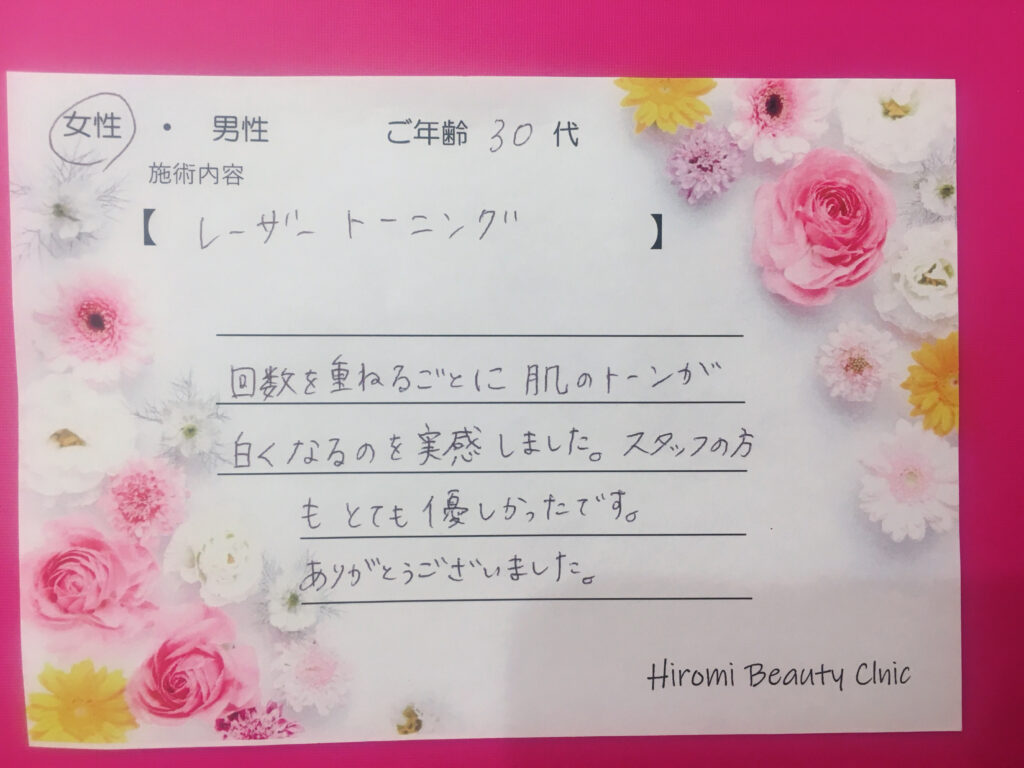 女性 ・ 男性 ご年齢 30 代
施術内容
【 レーザートーニング 】
回数を重ねるごとに肌のトーンが
白くなるのを実感しました。スタッフの方
もとても優しかったです。
ありがとうございました。
Hiromi Beauty Clnic